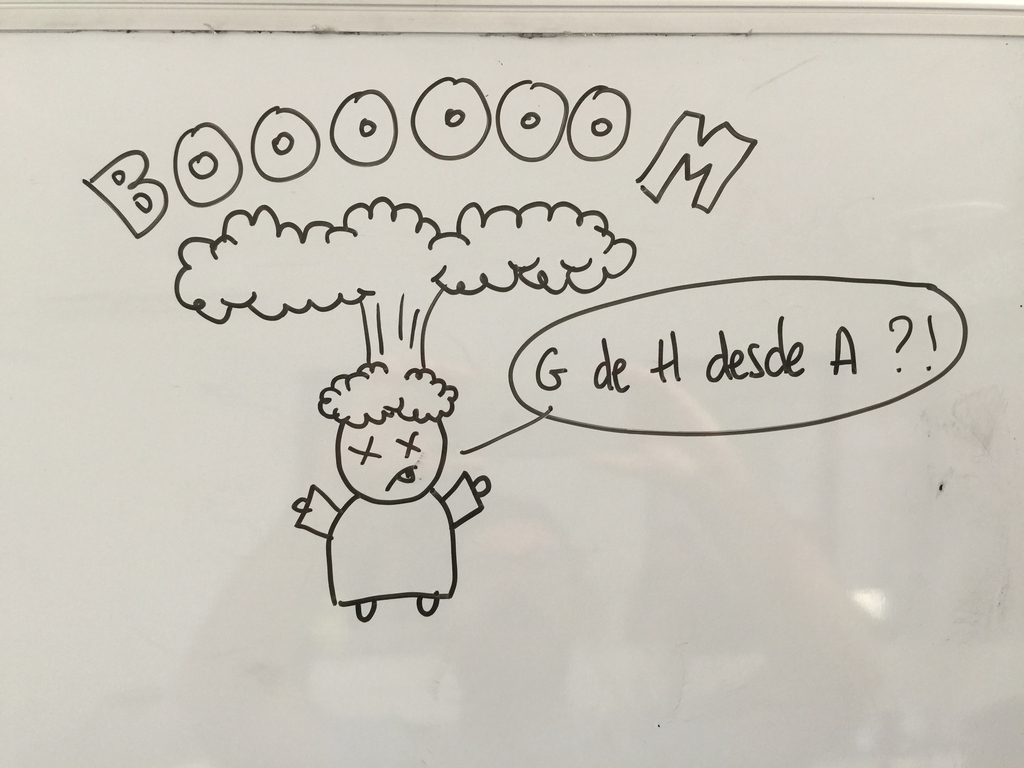 BOOOOOOM
G de H desde A ?!